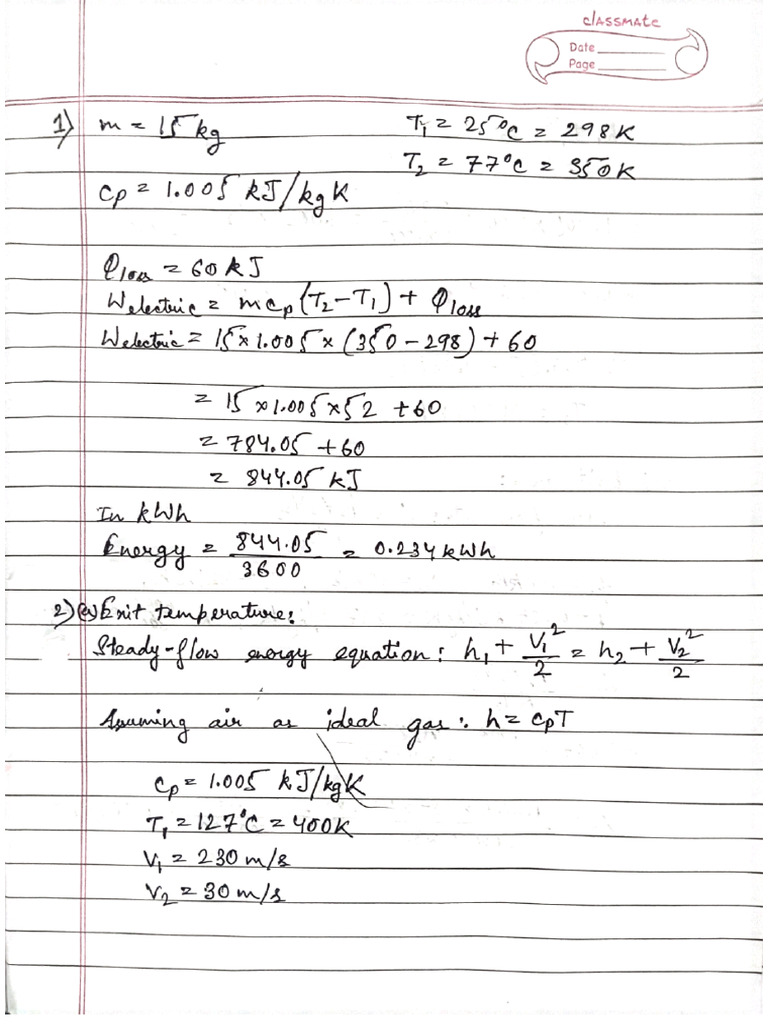 classmate
Date
Page
1) m = 15 kg T₁ = 25°C = 298K
T₂ = 77°C = 350K
Cp = 1.005 kJ/kg K
Qloss = 60 kJ
Welectric = mcp(T₂-T₁) + Qloss
Welectric = 15 x 1.005 x (350 - 298) + 60
= 15 x 1.005 x 52 + 60
= 784.05 + 60
= 844.05 kJ
In kWh
Energy = 844.05/3600 = 0.234 kWh
2) (a) Exit temperature:
Steady-flow energy equation: h₁ + V₁²/2 = h₂ + V₂²/2
Assuming air as ideal gas: h = CpT
Cp = 1.005 kJ/kgK
T₁ = 127°C = 400K
V₁ = 230 m/s
V₂ = 30 m/s